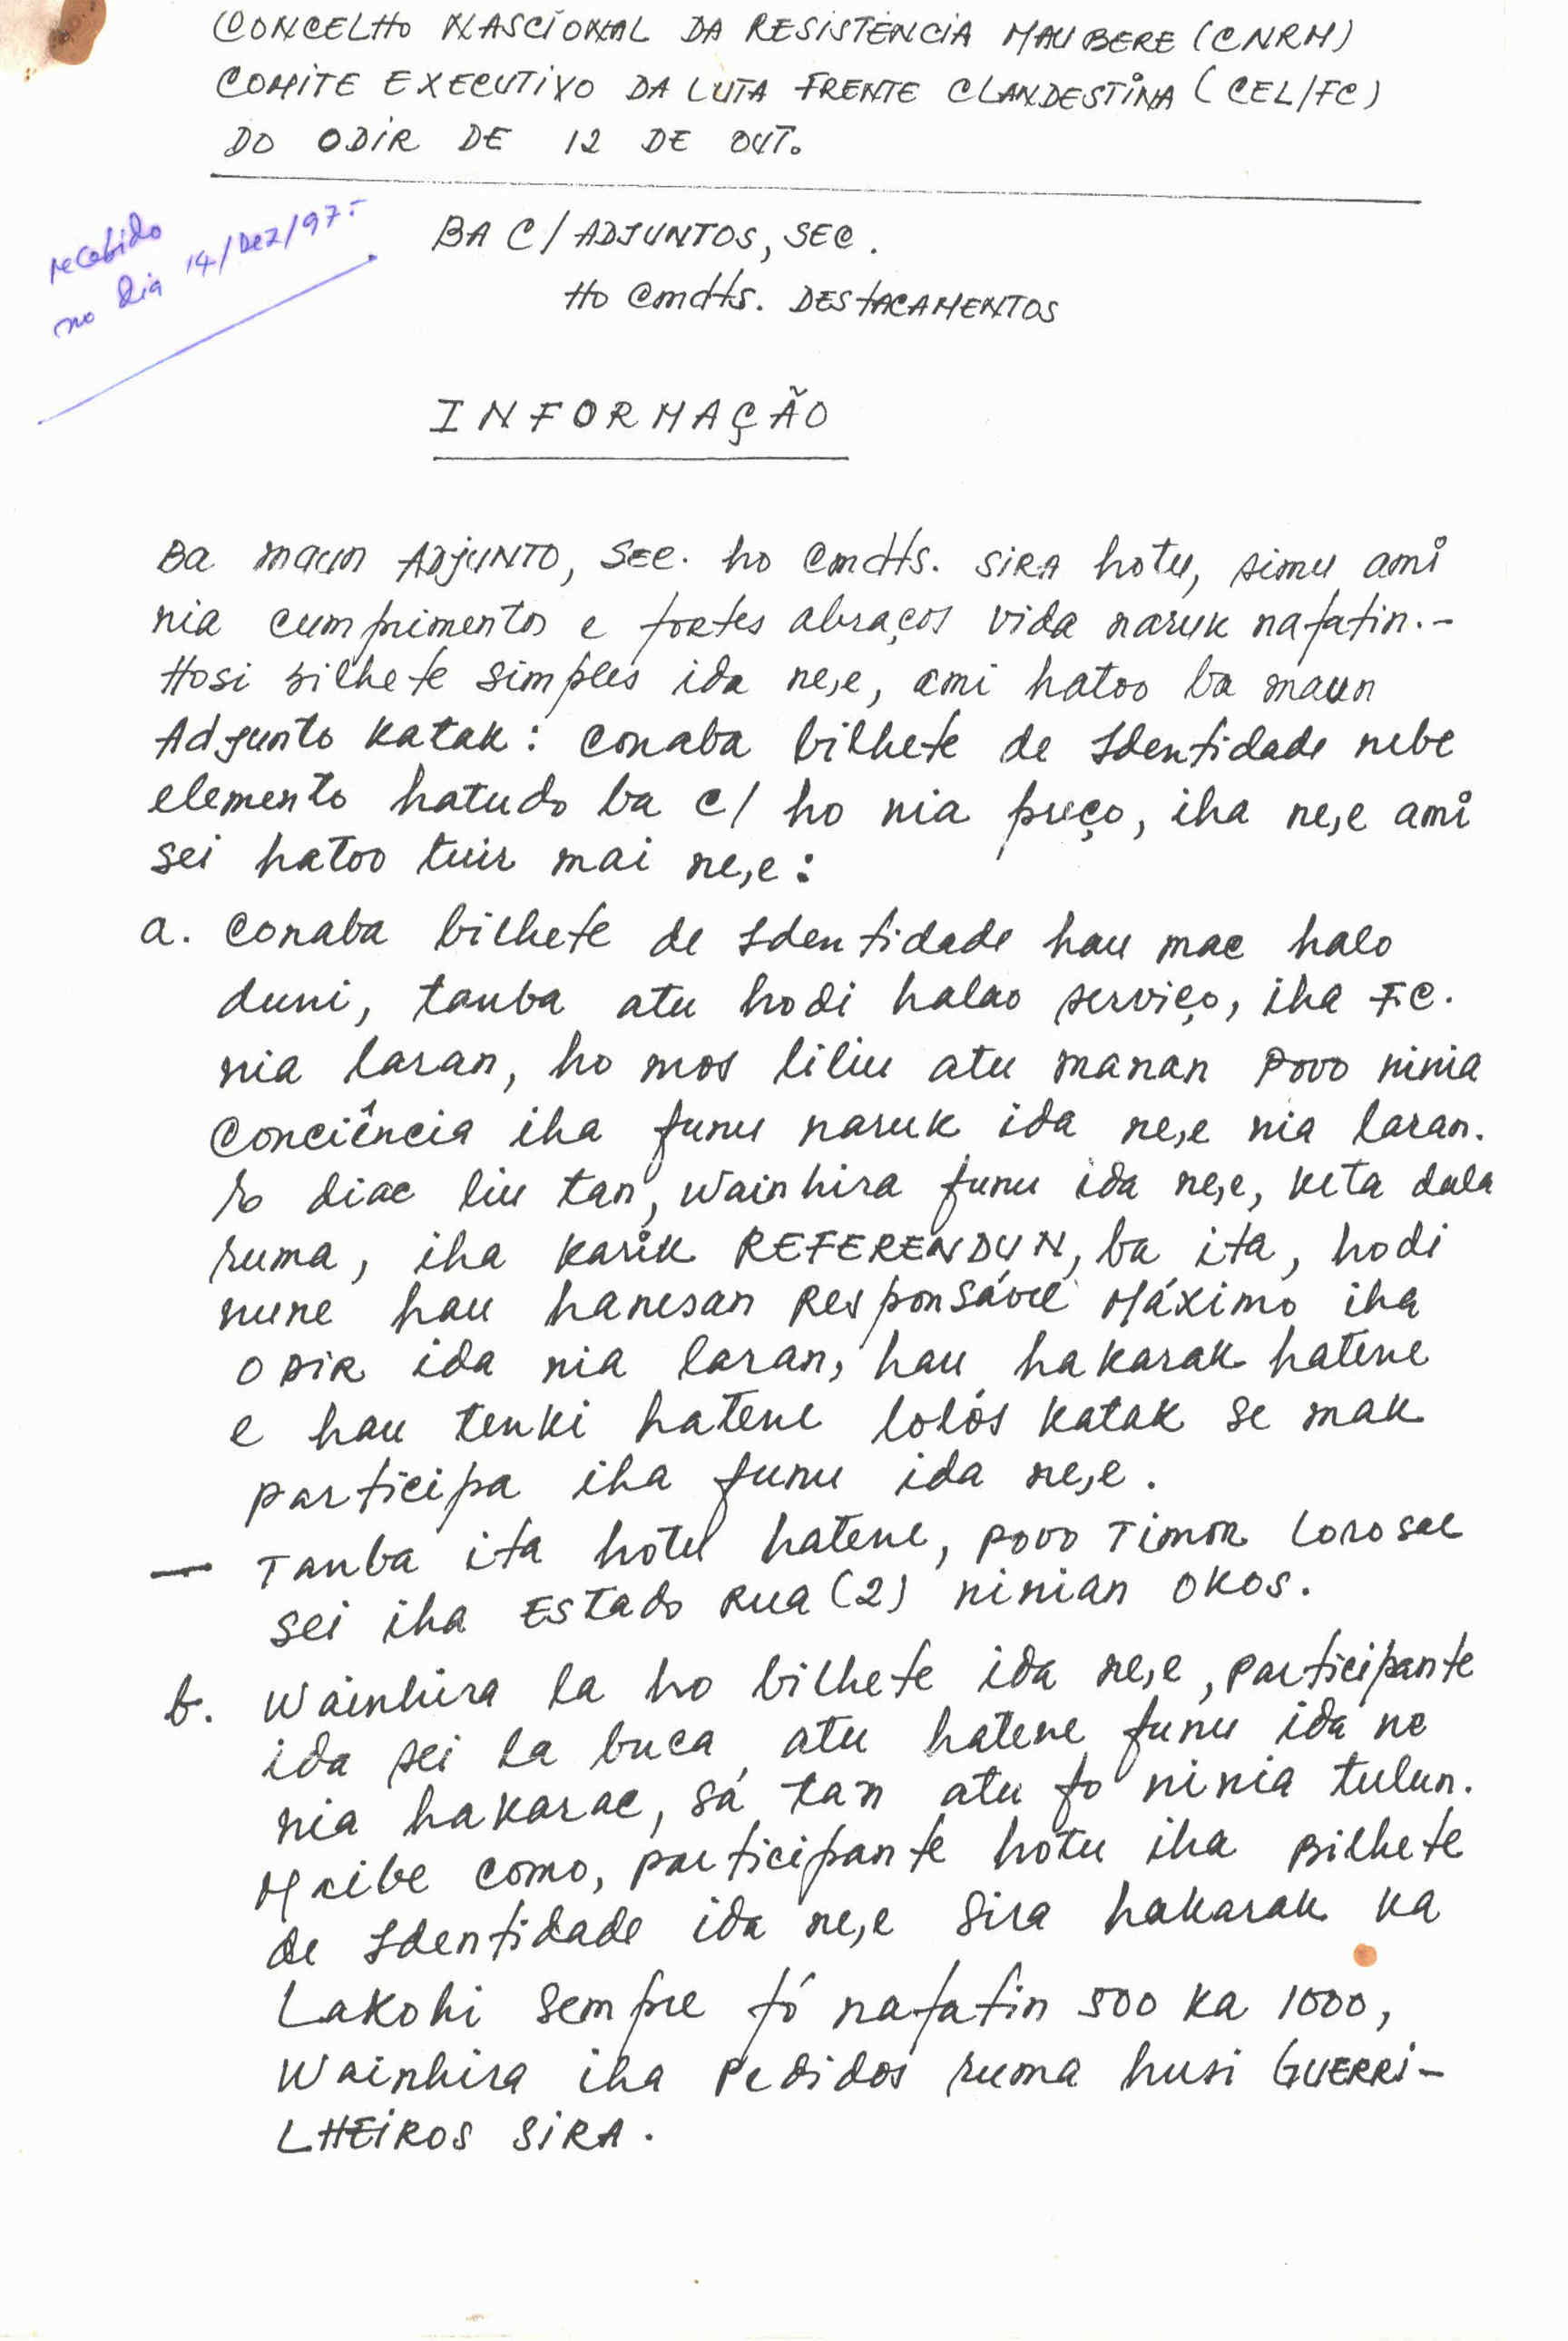 CONCELHO NASCIONAL DA RESISTÊNCIA MAUBERE (CNRM)
COMITE EXECUTIVO DA LUTA FRENTE CLANDESTINA (CEL/FC)
DO ODIR DE 12 DE OUT.
recebido
no dia 14/Dez/97.-
BA C/ ADJUNTOS, SEC.
HO Cmdts. DESTACAMENTOS
INFORMAÇÃO
Ba maun ADJUNTO, SEC. ho Cmdts. SIRA hotu, simu ami
nia cumprimentos e fortes abraços vida naruk nafatin.-
Hosi bilhete simples ida ne,e, ami hatoo ba maun
Adjunto katak: conaba bilhete de Identidade nebe
elemento hatudo ba C/ ho nia preço, iha ne,e ami
sei hatoo tuir mai ne,e:
a. conaba bilhete de Identidade hau mac halo
duni, tanba atu hodi halao serviço, iha F.C.
nia laran, ho mos liliu atu manan Povo ninia
conciência iha funu naruk ida ne,e nia laran.
diac liu tan, wainhira funu ida ne,e, keta dala
ruma, iha karik REFERENDUN, ba ita, hodi
nune hau hanesan Responsável Máximo iha
ODIR ida nia laran, hau hakarak hatene
e hau tenki hatene lolós katak se mak
participa iha funu ida ne,e.
— Tanba ita hotu hatene, Povo Timor Lorosae
sei iha Estado Rua (2) ninian okos.
b. Wainhira la ho bilhete ida ne,e, participante
ida sei la buca atu hatene funu ida ne
nia hakarac, sá tan atu fo ninia tulun.
Maibe como, participante hotu iha Bilhete
de Identidade ida ne,e sira hakarak ka
Lakohi sempre fó nafatin 500 ka 1000,
Wainhira iha Pedidos ruma husi GUERRI-
LHEIROS SIRA.